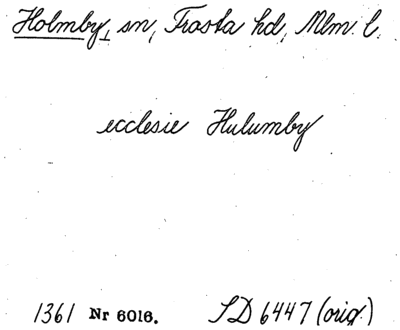 Holmby, sn, Frosta hd, Mlm. l.
ecclesie Hulumby
1361 Nr 6016. SD 6447 (orig.)